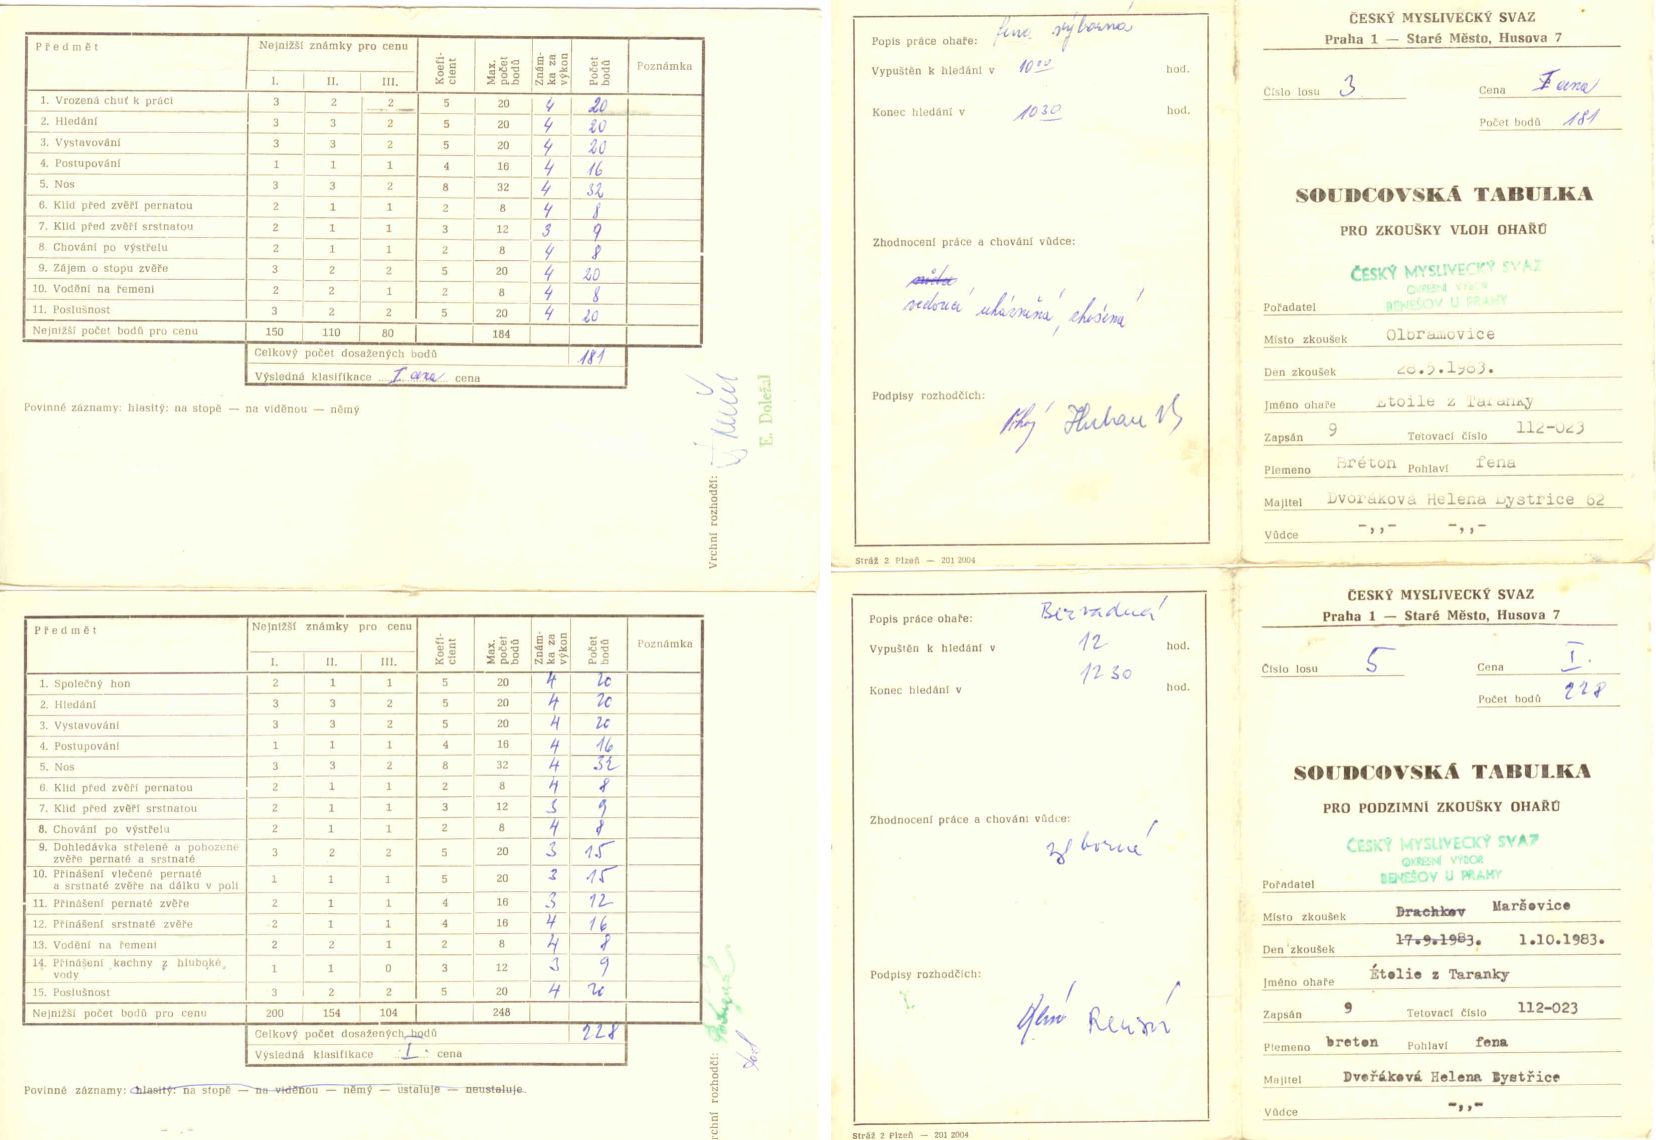 Předmět Nejnižší známky pro cenu Koefi-cient Max. počet bodů Znám-ka za výkon Počet bodů Poznámka
I. II. III.
1. Vrozená chuť k práci 3 2 2 5 20 4 20
2. Hledání 3 3 2 5 20 4 20
3. Vystavování 3 3 2 5 20 4 20
4. Postupování 1 1 1 4 16 4 16
5. Nos 3 3 2 8 32 4 32
6. Klid před zvěří pernatou 2 1 1 2 8 4 8
7. Klid před zvěří srstnatou 2 1 1 3 12 3 9
8. Chování po výstřelu 2 1 1 2 8 4 8
9. Zájem o stopu zvěře 3 2 2 5 20 4 20
10. Vodění na řemeni 2 2 1 2 8 4 8
11. Poslušnost 3 2 2 5 20 4 20
Nejnižší počet bodů pro cenu 150 110 80 184
Celkový počet dosažených bodů 181
Výsledná klasifikace I. cena cena
Povinné záznamy: hlasitý: na stopě — na viděnou — němý
Vrchní rozhodčí:
E. Doležal
Popis práce ohaře: fena výborná
Vypuštěn k hledání v 10 00 hod.
Konec hledání v 10 30 hod.
Zhodnocení práce a chování vůdce:
vedoucí ukázněná,
Podpisy rozhodčích:
Stráž 2 Plzeň — 201 2004
ČESKÝ MYSLIVECKÝ SVAZ
Praha 1 — Staré Město, Husova 7
Číslo losu 3 Cena I cena
Počet bodů 181
SOUDCOVSKÁ TABULKA
PRO ZKOUŠKY VLOH OHAŘŮ
ČESKÝ MYSLIVECKÝ SVAZ
OKRESNÍ VÝBOR
BENEŠOV U PRAHY
Pořadatel
Místo zkoušek Olbramovice
Den zkoušek
Jméno ohaře Etoile z Taranky
Zapsán 9 Tetovací číslo 112-023
Plemeno Bréton Pohlaví fena
Majitel Dvořáková Helena Bystrice 62
Vůdce -,,- -,,-
Předmět Nejnižší známky pro cenu Koefi-cient Max. počet bodů Znám-ka za výkon Počet bodů Poznámka
I. II. III.
1. Společný hon 2 1 1 5 20 4 20
2. Hledání 3 3 2 5 20 4 20
3. Vystavování 3 3 2 5 20 4 20
4. Postupování 1 1 1 4 16 4 16
5. Nos 3 3 2 8 32 4 32
6. Klid před zvěří pernatou 2 1 1 2 8 4 8
7. Klid před zvěří srstnatou 2 1 1 3 12 3 9
8. Chování po výstřelu 2 1 1 2 8 4 8
9. Dohledávka střelené a pohozené
zvěře pernaté a srstnaté 3 2 2 5 20 3 15
10. Přinášení vlečené pernaté
a srstnaté zvěře na dálku v poli 1 1 1 5 20 3 15
11. Přinášení pernaté zvěře 2 1 1 4 16 3 12
12. Přinášení srstnaté zvěře 2 1 1 4 16 4 16
13. Vodění na řemeni 2 2 1 2 8 4 8
14. Přinášení kachny z hluboké
vody 1 1 0 3 12 3 9
15. Poslušnost 3 2 2 5 20 4 20
Nejnižší počet bodů pro cenu 200 154 104 248
Celkový počet dosažených bodů 228
Výsledná klasifikace I. cena
Povinné záznamy: hlasitý: na stopě — na viděnou — němý — ustaluje — neustaluje.
Vrchní rozhodčí:
Popis práce ohaře: Bezvadná
Vypuštěn k hledání v 12 hod.
12 30
Konec hledání v hod.
Zhodnocení práce a chování vůdce:
výborné
Podpisy rozhodčích:
Stráž 2 Plzeň — 201 2004
ČESKÝ MYSLIVECKÝ SVAZ
Praha 1 — Staré Město, Husova 7
Číslo losu 5 Cena I.
Počet bodů 228
SOUDCOVSKÁ TABULKA
PRO PODZIMNÍ ZKOUŠKY OHAŘŮ
ČESKÝ MYSLIVECKÝ SVAZ
OKRESNÍ VÝBOR
BENEŠOV U PRAHY
Pořadatel
Místo zkoušek Drachkov Maršovice
Den zkoušek 17.9.1983. 1.10.1983.
Jméno ohaře Étolie z Taranky
Zapsán 9 Tetovací číslo 112-023
Plemeno breton Pohlaví fena
Majitel Dvořáková Helena Bystřice
Vůdce -,,-